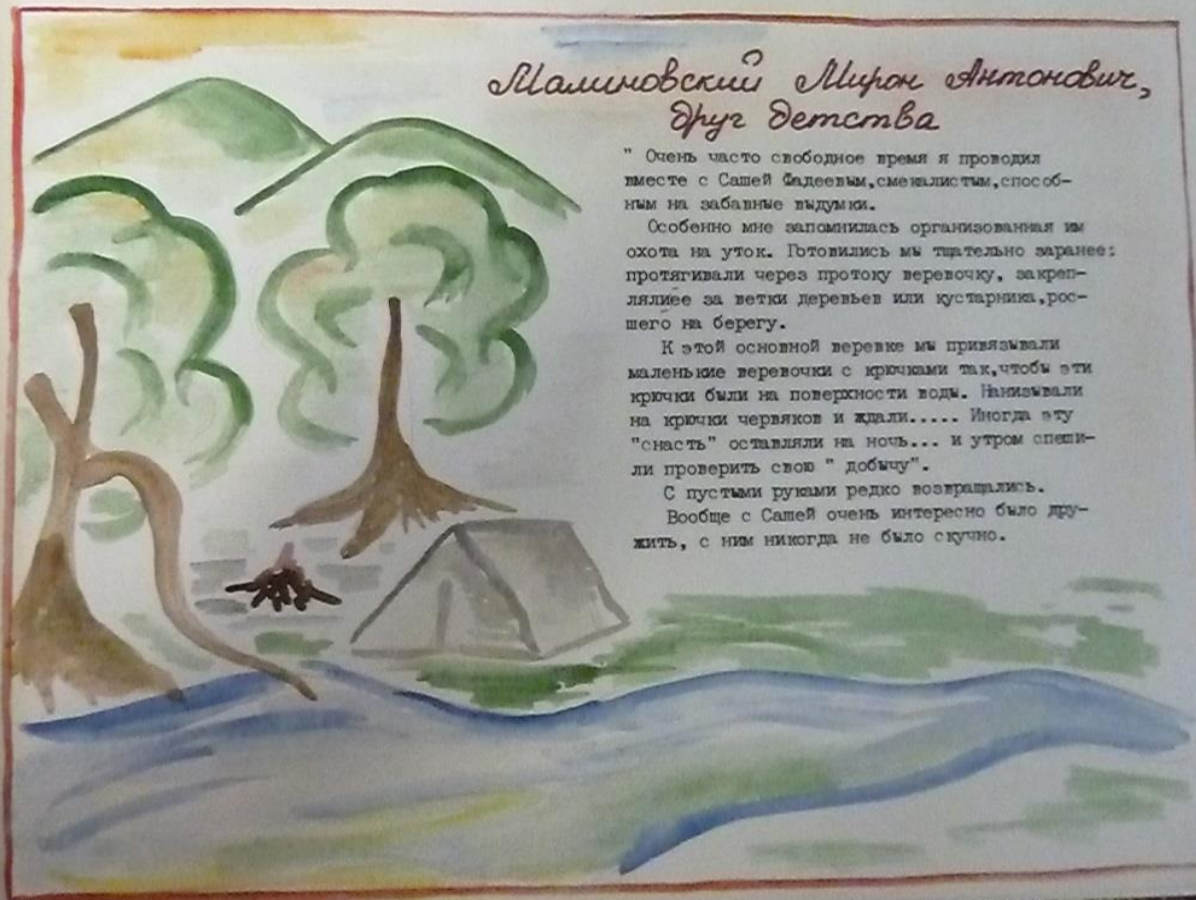 Малиновский Мирон Антонович,
друг детства
" Очень часто свободное время я проводил
вместе с Сашей Фадеевым,смекалистым,способ-
ным на забавные выдумки.
Особенно мне запомнилась организованная им
охота на уток. Готовились мы тщательно заранее:
протягивали через протоку веревочку, закреп-
лялиее за ветки деревьев или кустарника,рос-
шего на берегу.
К этой основной веревке мы привязывали
маленькие веревочки с крючками так,чтобы эти
крючки были на поверхности воды. Нанизывали
на крючки червяков и ждали..... Иногда эту
"снасть" оставляли на ночь... и утром спеши-
ли проверить свою " добычу".
С пустыми руками редко возвращались.
Вообще с Сашей очень интересно было дру-
жить, с ним никогда не было скучно.